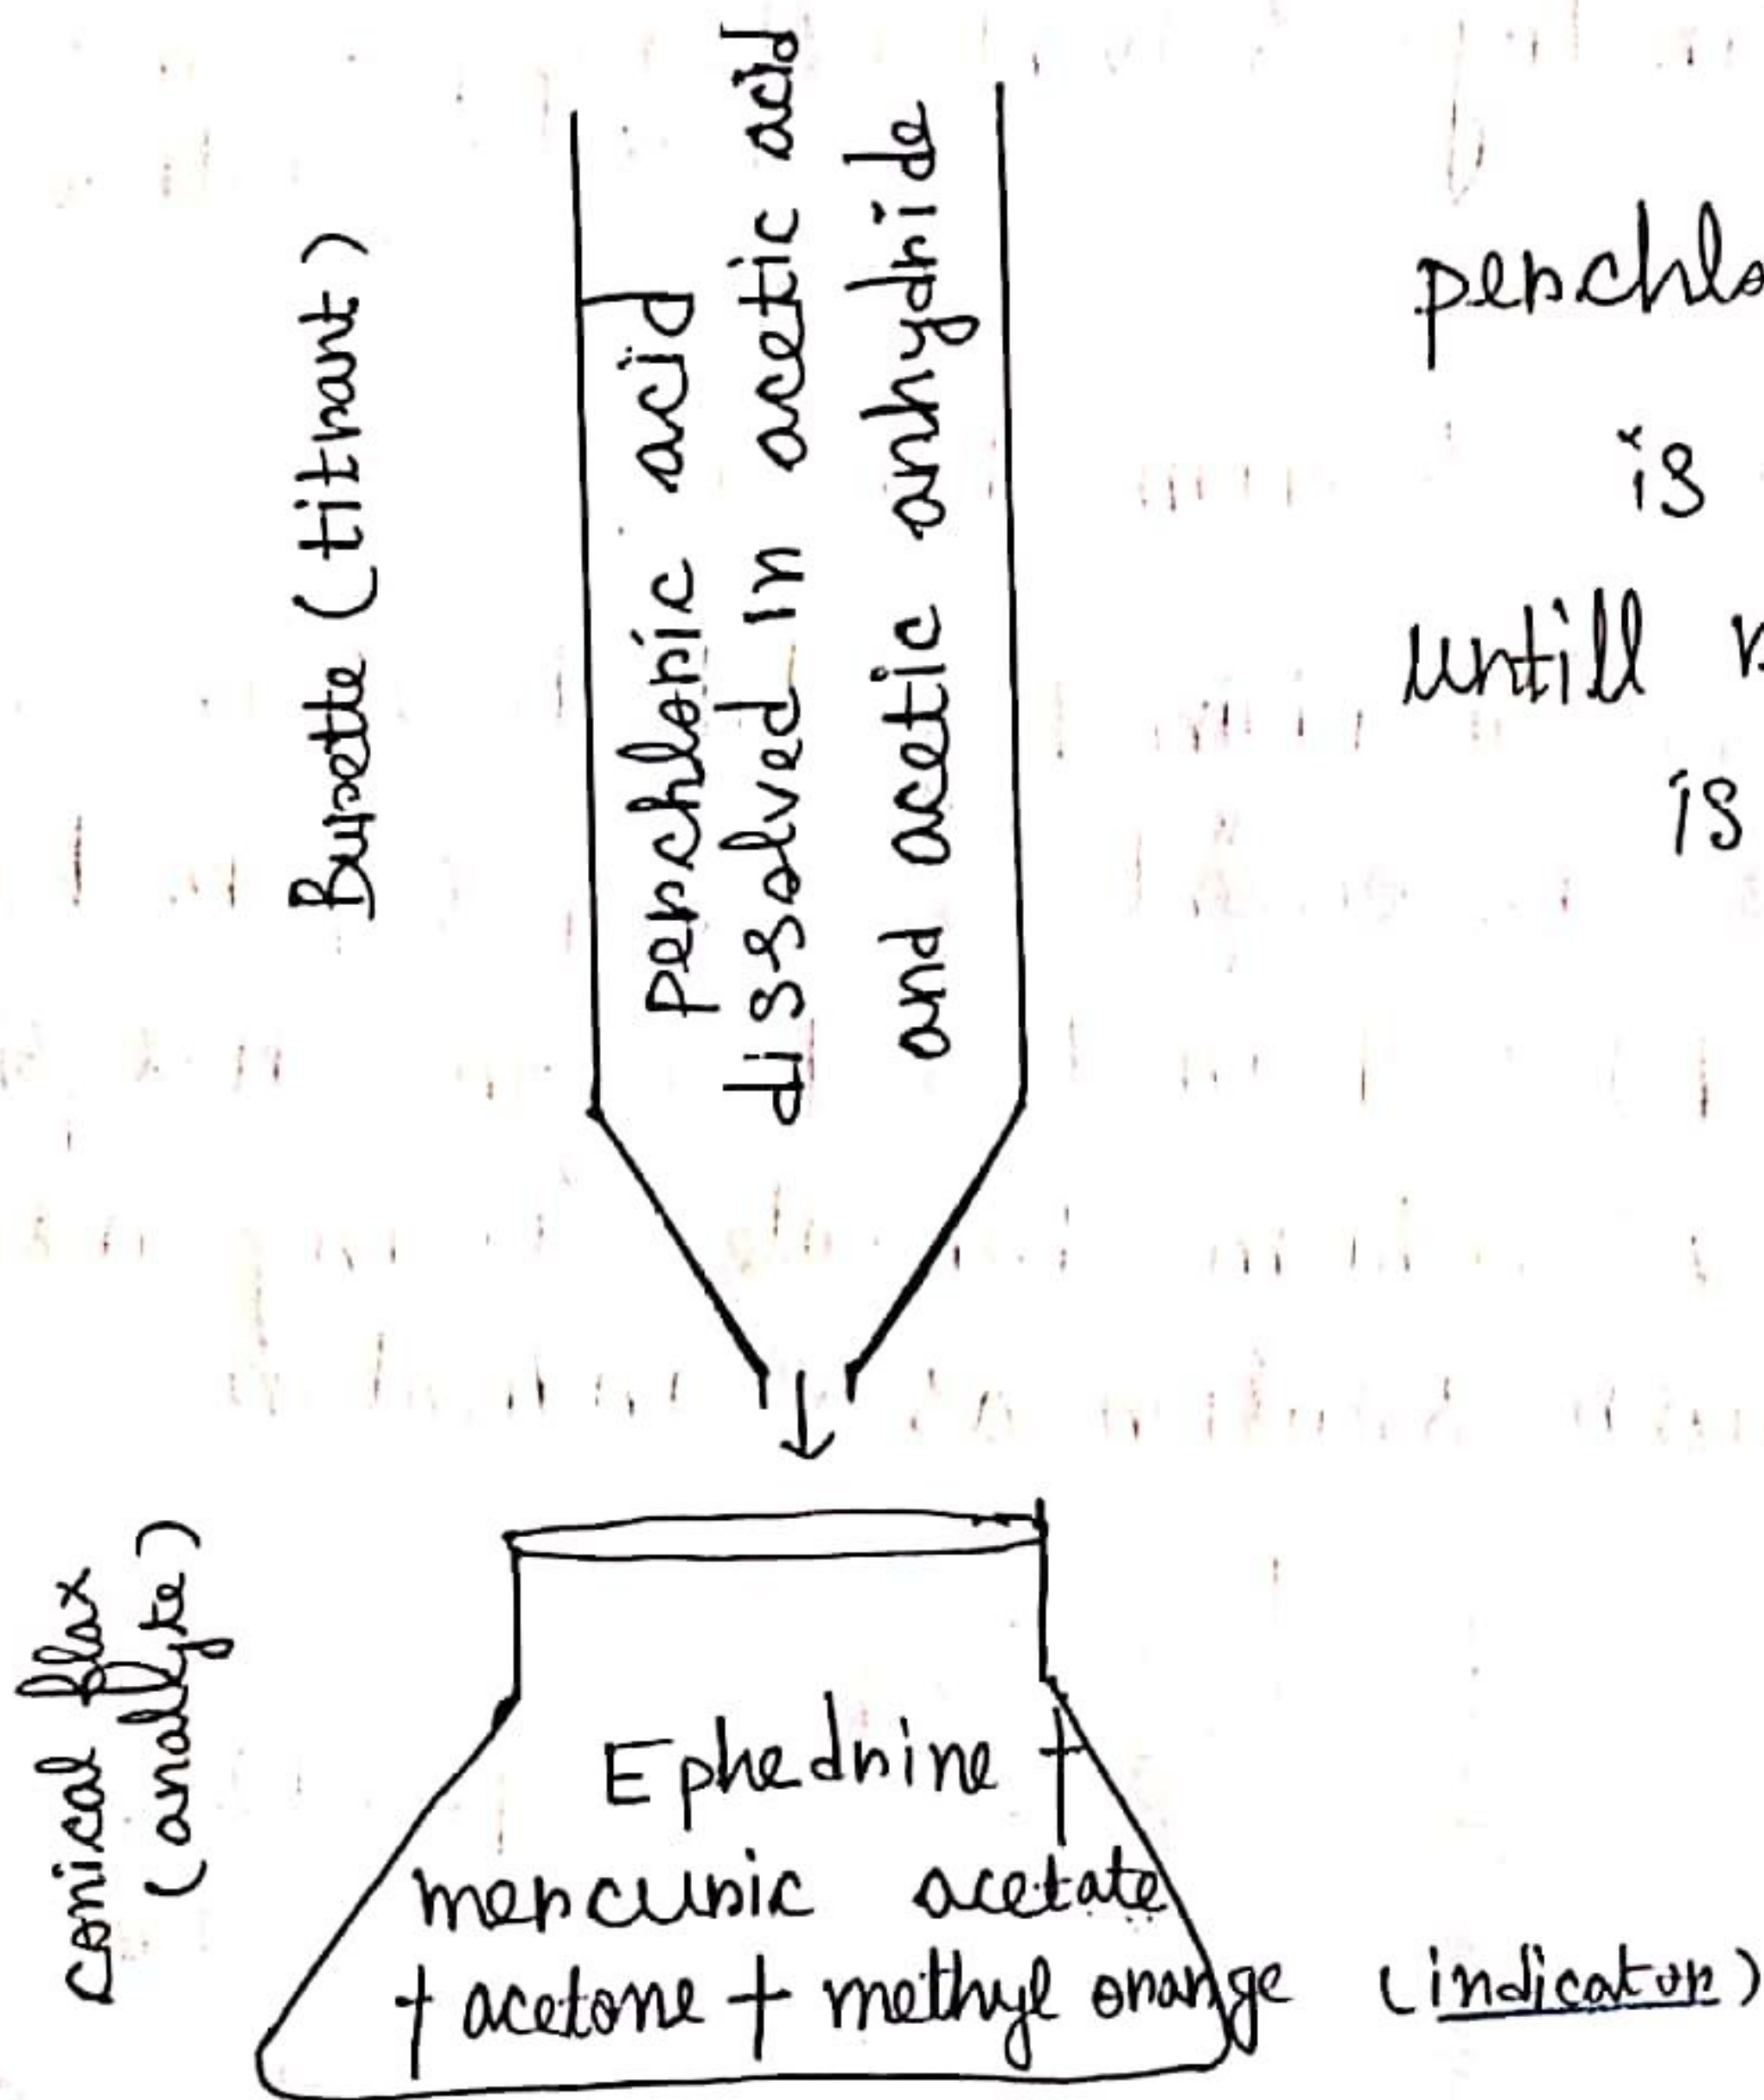 Burette (titrant)
perchloric acid
dissolved in acetic acid
and acetic anhydride
perchlo
is
untill
is
conical flax
(analyte)
Ephedrine +
mercuric acetate
+ acetone + methyl orange (indicator)